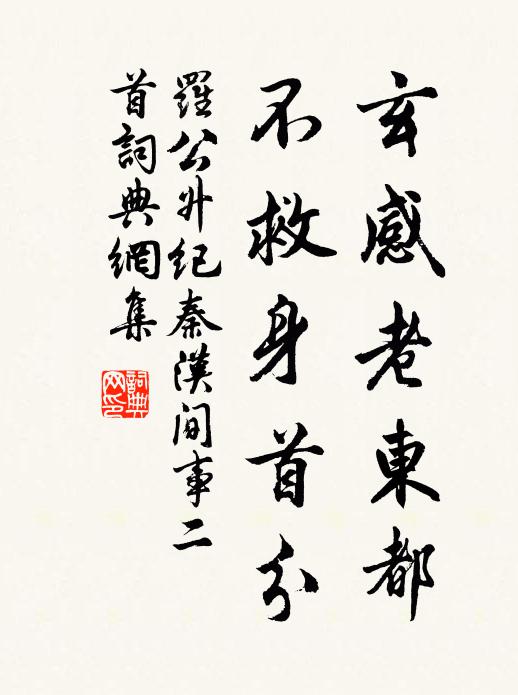 玄感老東都
不救身首分
羅公升紀秦漢間事二
首詞典網集
詞典
网印